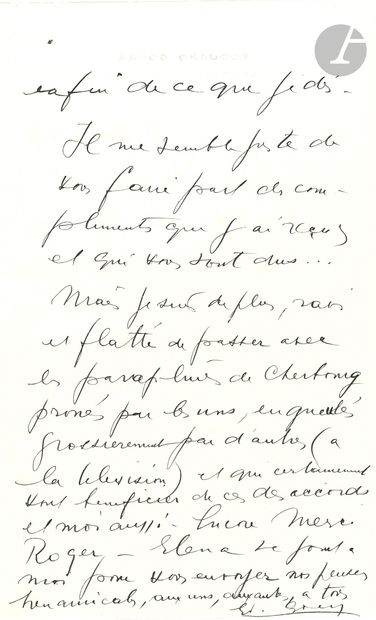 enfin de ce que je dis -
Il me semble juste de
vous faire part des com-
pliments que j'ai reçus
et qui vous sont dus ...
Mais je suis de plus, ravi
et flatté de passer avec
les parapluies de Cherbourg
pronés par les uns, engueulés
grossièrement par d'autres (à
la télévision) et qui certainement
vont bénéficier de ces désaccords
et moi aussi - Encore Merci
Roger - Elena se joint à
moi pour vous envoyer nos pensées
bien amicales, aux uns, aux autres, à tous